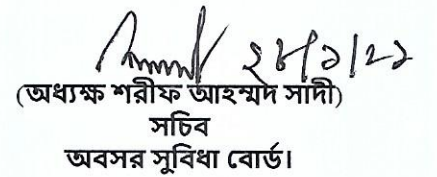 ২৮/১/২১
(অধ্যক্ষ শরীফ আহম্মদ সাদী)
সচিব
অবসর সুবিধা বোর্ড।